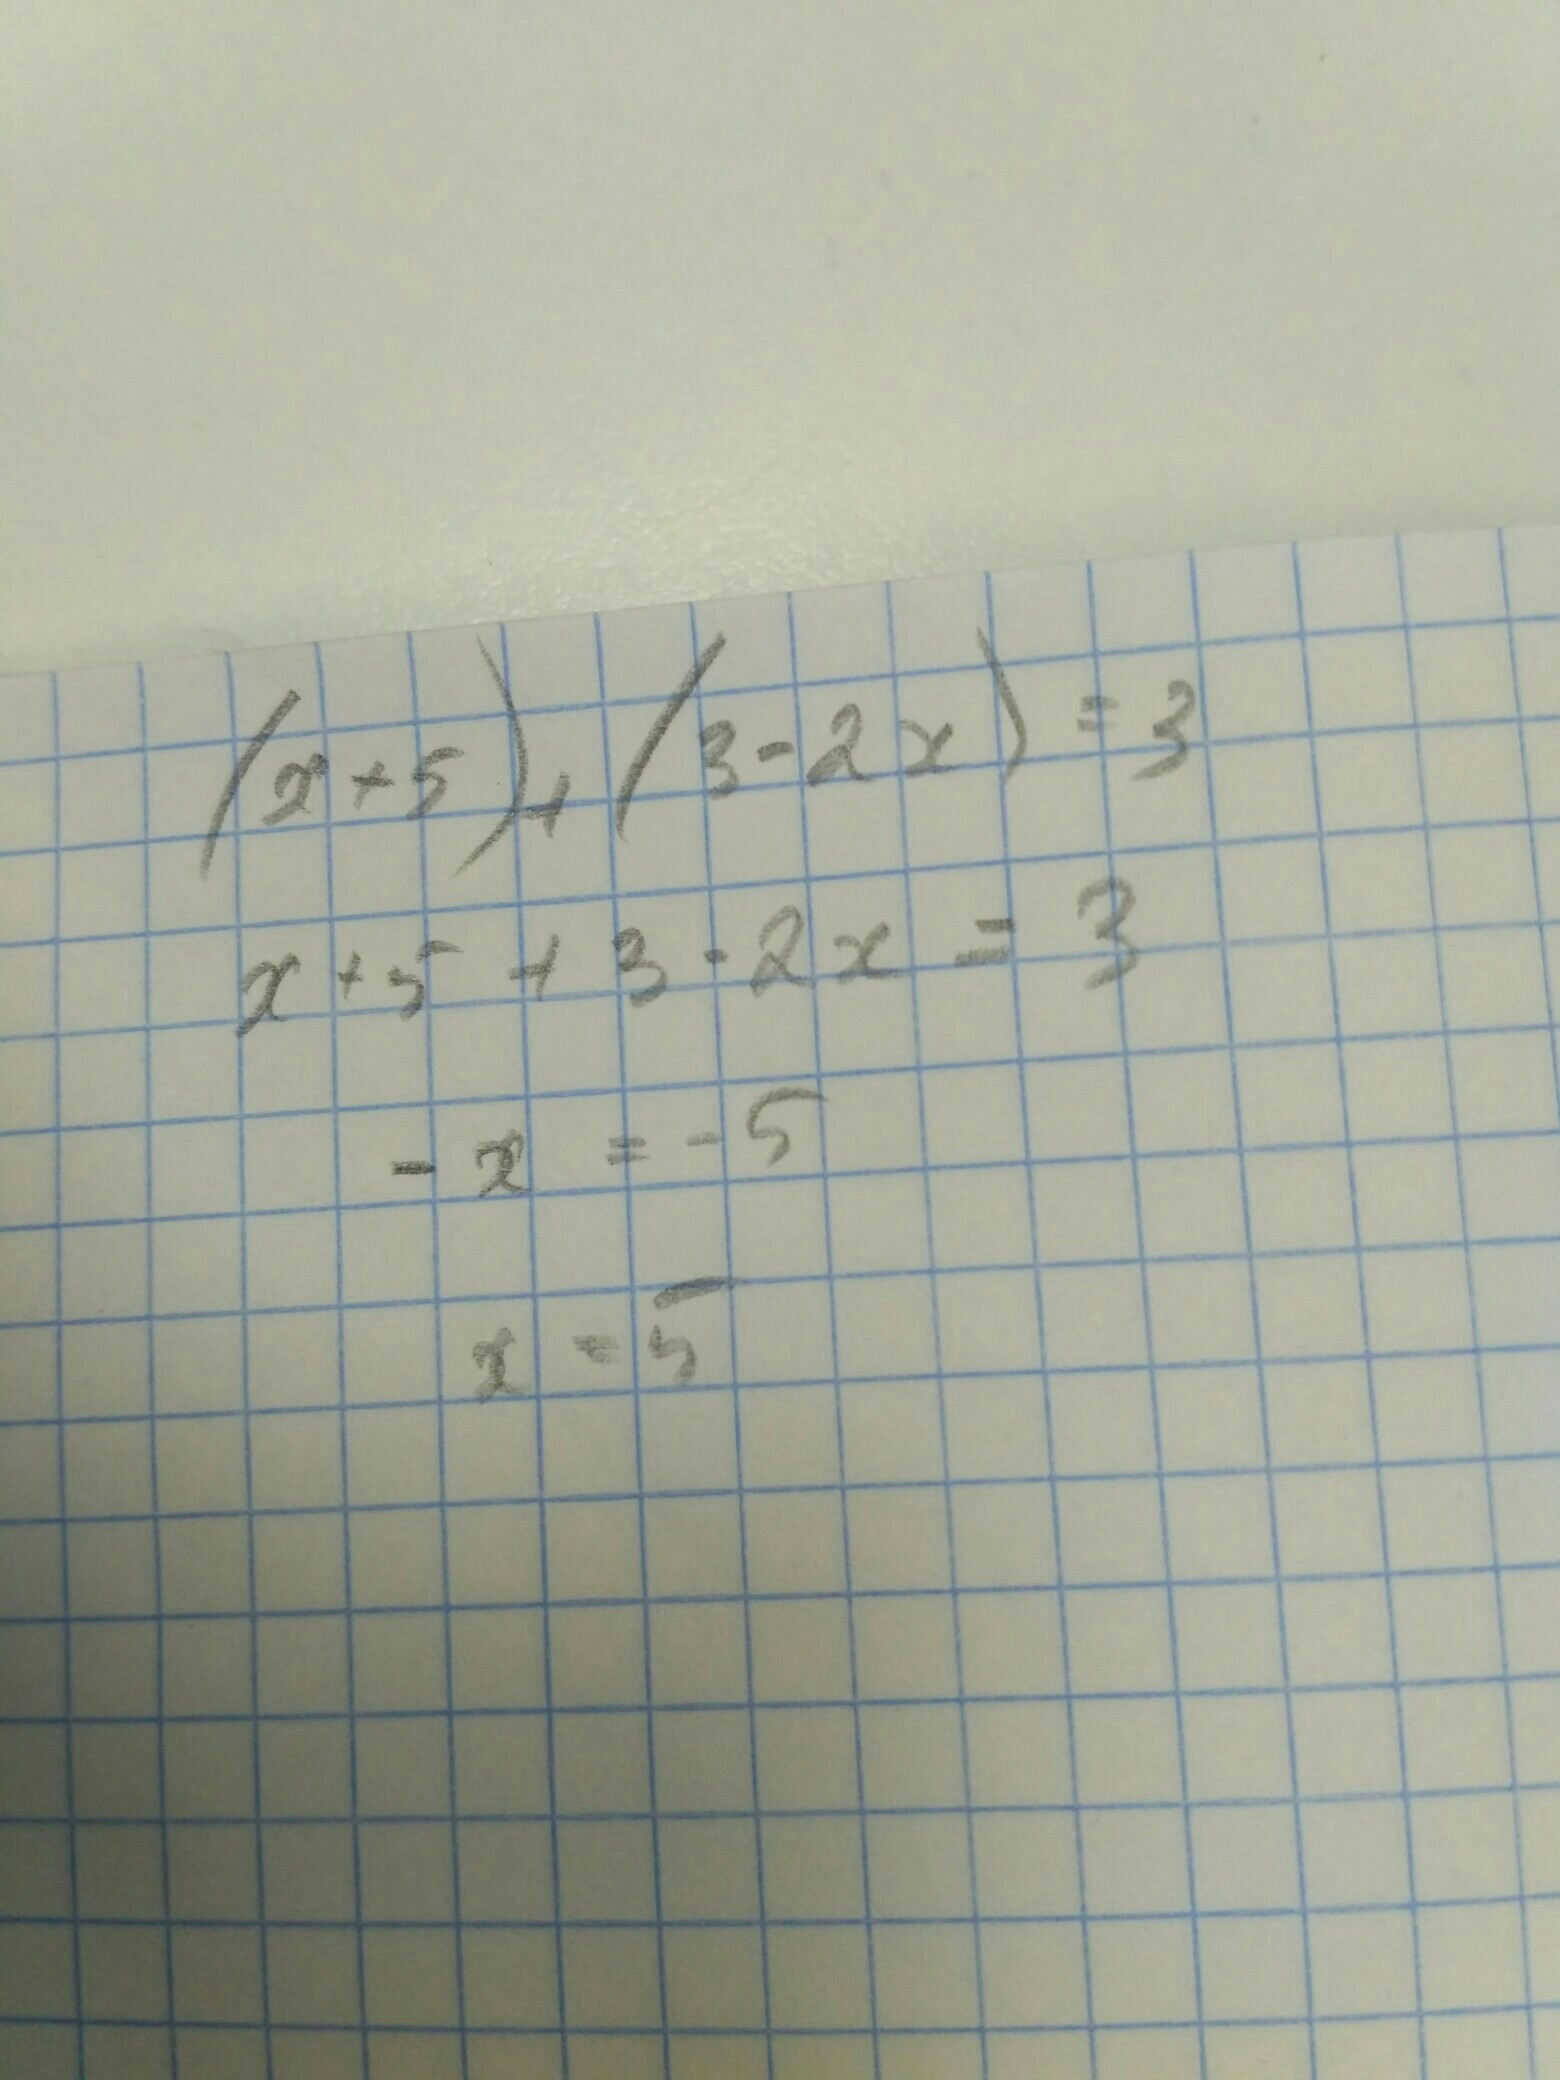 (x+5)+(3-2x)=3
x+5+3-2x=3
-x=-5
x=5